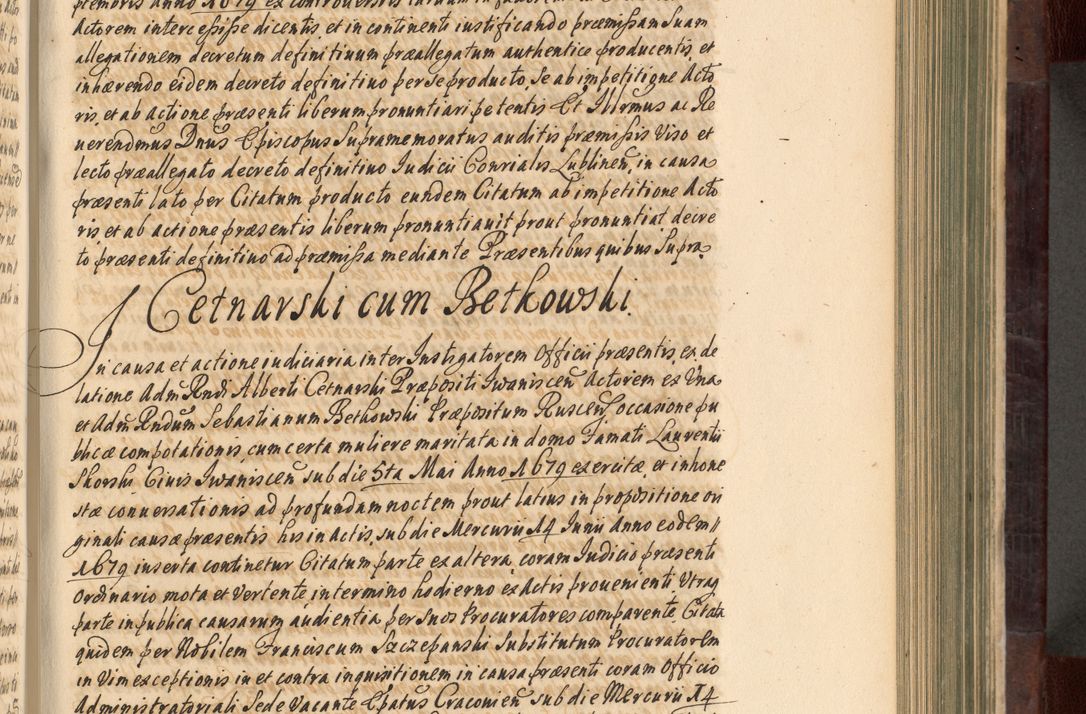 ptembris anno 1679 ex controversiis
Actorem intercessisse dicentis, et in continenti iustificando præmissam Suam
allegationem decretum definitiuum præallegatum authentice producentis et
inhærendo eidem decreto definitiuo per se producto, Se ab impetitione Acto
ris, et ab actione præsenti liberum pronuntiari petentis Et Illrmus ac Re
uerendmus Dnus Episcopus Supramemoratus auditis præmissis Viso et
lecto præallegato decreto definitiuo Iudicii Conrialis Lublinen̄, in causa
præsenti lato per Citatum producto eundem Citatum ab impetitione Acto
ris et ab actione præsentis liberum pronuntiauit prout pronuntiat decre
to præsenti definitiuo ad præmissa mediante Præsentibus quibus Supra
Cetnarski cum Betkowski.
In causa et actione iudiciaria inter Instigatorem Officii præsentis ex de
latione Adm̄ Rndi Alberti Cetnarski Præpositi Iwaniscen̄ Actorem ex Vna
et Adm̄ Rndum Sebastianum Betkowski Præpositum Ruscen̄, occasione pu
blicæ compotationis, cum certa muliere maritata in domo Famati Laurentii
Skorski Ciuis Iwaniscen̄ sub die 5ta Mai Anno 1679 exercitæ, et inhone
stæ conuersationis ad profundam noctem prout latius in propositione ori
ginali causæ præsentis his in actis, sub die Mercurii 14 Iunii Anno eodem //
1679 inserta continetur Citatum parte ex altera, coram Iudicio præsenti
Ordinario mota et Vertente, in termino hodierno ex Actis proueniente, Vtraq
parte in publica causarum audientia per Suos Procuratores comparente, Citata
quidem per Nobilem Franciscum Szczepanski Substitutum Procuratorem
in Vim exceptionis in et contra inquisitionem in causa præsenti coram Officio
Administratoriali Sede Vacante Epatus Craconien̄ sub die Mercurii 14